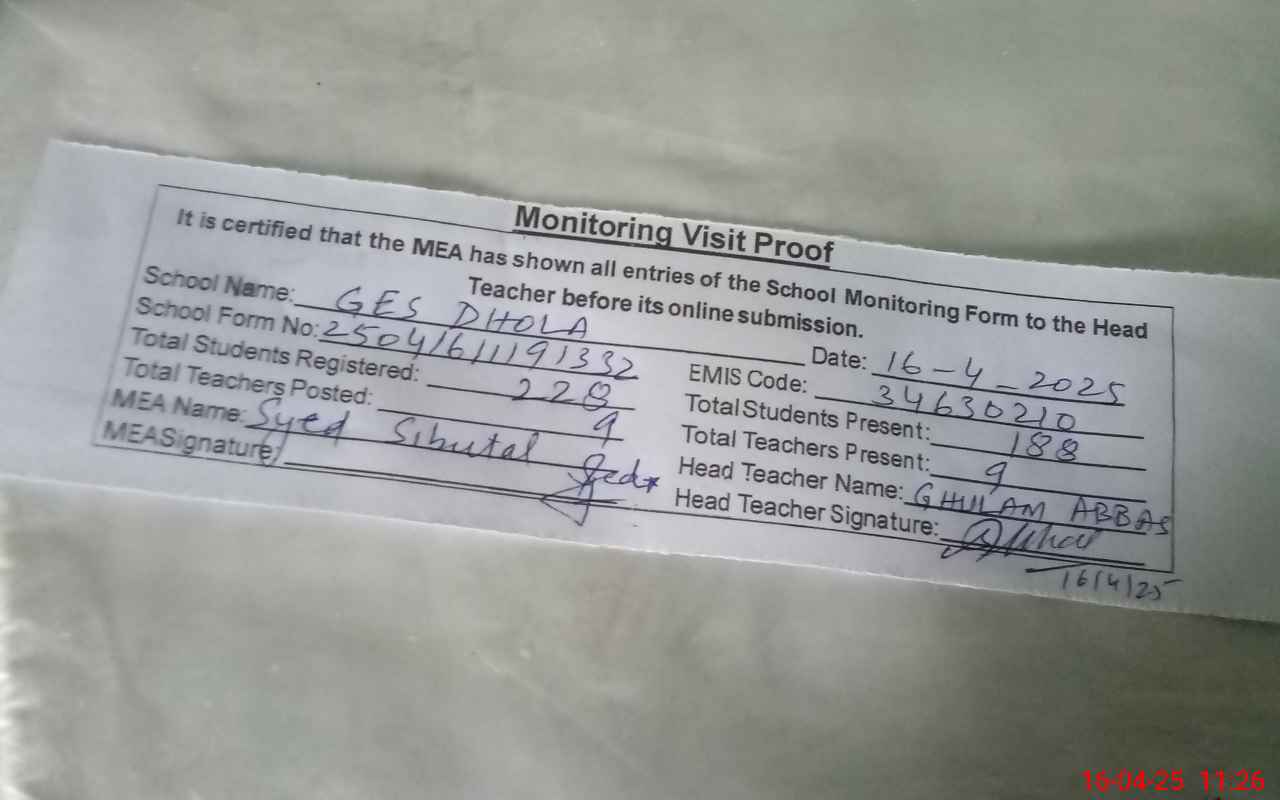 Monitoring Visit Proof
It is certified that the MEA has shown all entries of the School Monitoring Form to the Head
Teacher before its online submission.
School Name: GES DHOLA Date: 16-4-2025
School Form No: 25041611191332 EMIS Code: 34630210
Total Students Registered: 228 Total Students Present: 188
Total Teachers Posted: 9 Total Teachers Present: 9
MEA Name: Syed Sibutal Head Teacher Name: GHULAM ABBAS
MEASignature: Head Teacher Signature:
16/4/25
16-04-25 11:26